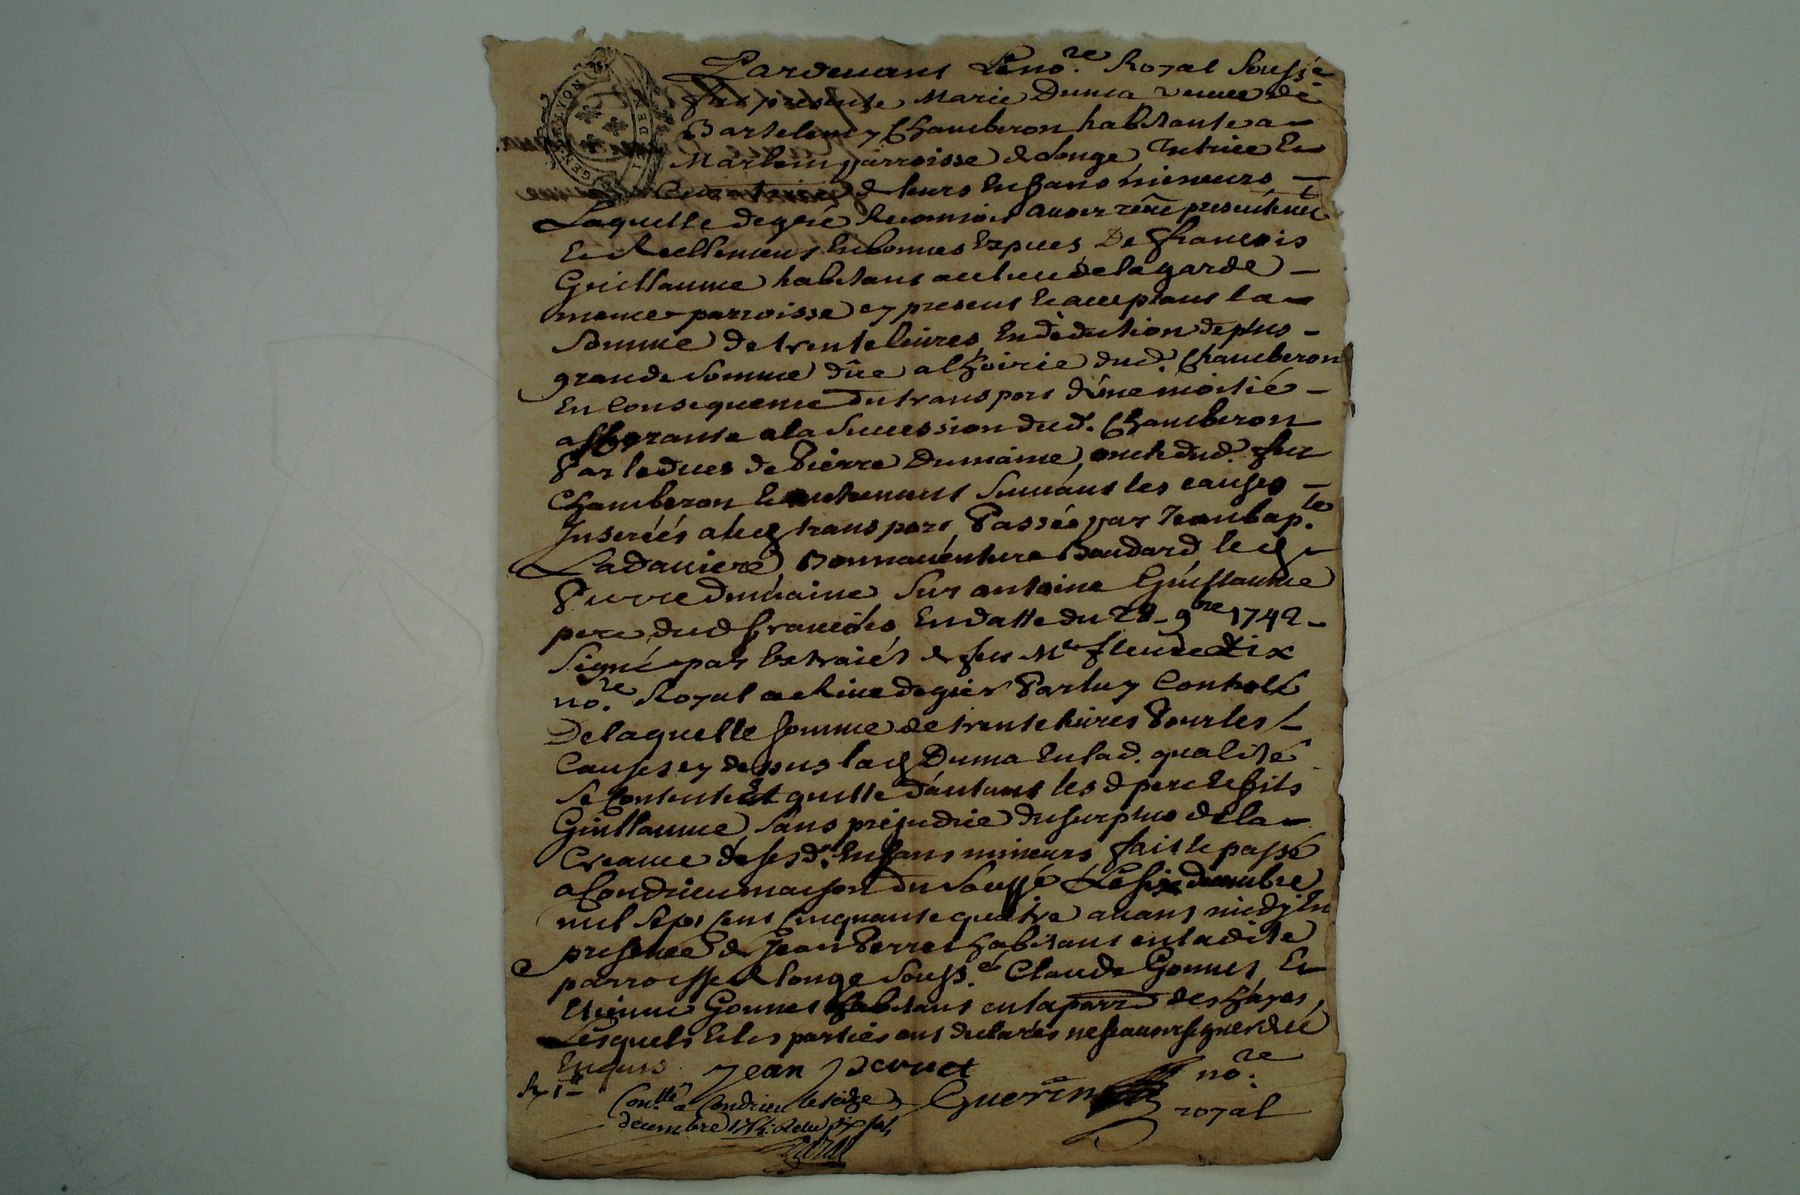 Pardevant Le no.re Royal Soussé
fut presente Marie Duma veuve de
Bartelemy Chamberon habitante a
Marlein parroisse de Longe, Tutrice Et
Curatrice de leurs Enfans mineurs
Laquelle de gré Reconnoit avoir recû presentemt
Et Reellement En bonnes Espues De François
Guillaume habitant au lieu de la garde
meme parroisse cy present Et acceptant la
Somme de trente livres En déduction de plus
grande Somme dûe a l'hoirie dud. Chamberon
En Consequence du transport d'üne moitié
afferante a la Succession dud. Chamberon
Par le deces de Pierre Dumaine, oncle dud. feu
Chamberon Et autrement Suivant les causes
Inserées aud transport Passée par Jean bap.te
Ladaviere Bonnaventure Boudard, le d
Pierre Dumaine Sur antoine Guillaume
pere dud françois En datte du 28 9bre 1742
Signé par Extrait de feu Me fleurdelix
no.re Royal a Rive de gier Par luy Controlé
De laquelle Somme de trente livres Pour les
Causes cy dessus la d Duma En lad. qualité
Se Contente Et quitte d'autant les d pere Et fils
Guillaume, Sans prejudice du surplus de la
Creance de ses d. Enfans mineurs fait Et passé
a Condrieu maison du Soussé Le six decembre
mil sept cent Cinquante quatre avant midy En
presence de Jean Perret habitant en ladite
parroisse de longe Souss.é Claude Gonnet Et
Etienne Gonnet habitant en la parr des hayes,
Lesquels Et les parties ont declarés ne scavoir signer de ce
Enquis. Jean Perret
R 1ll
Guerin no.re
royal
Con.llé a Condrieu le seize
decembre 1754. Recu